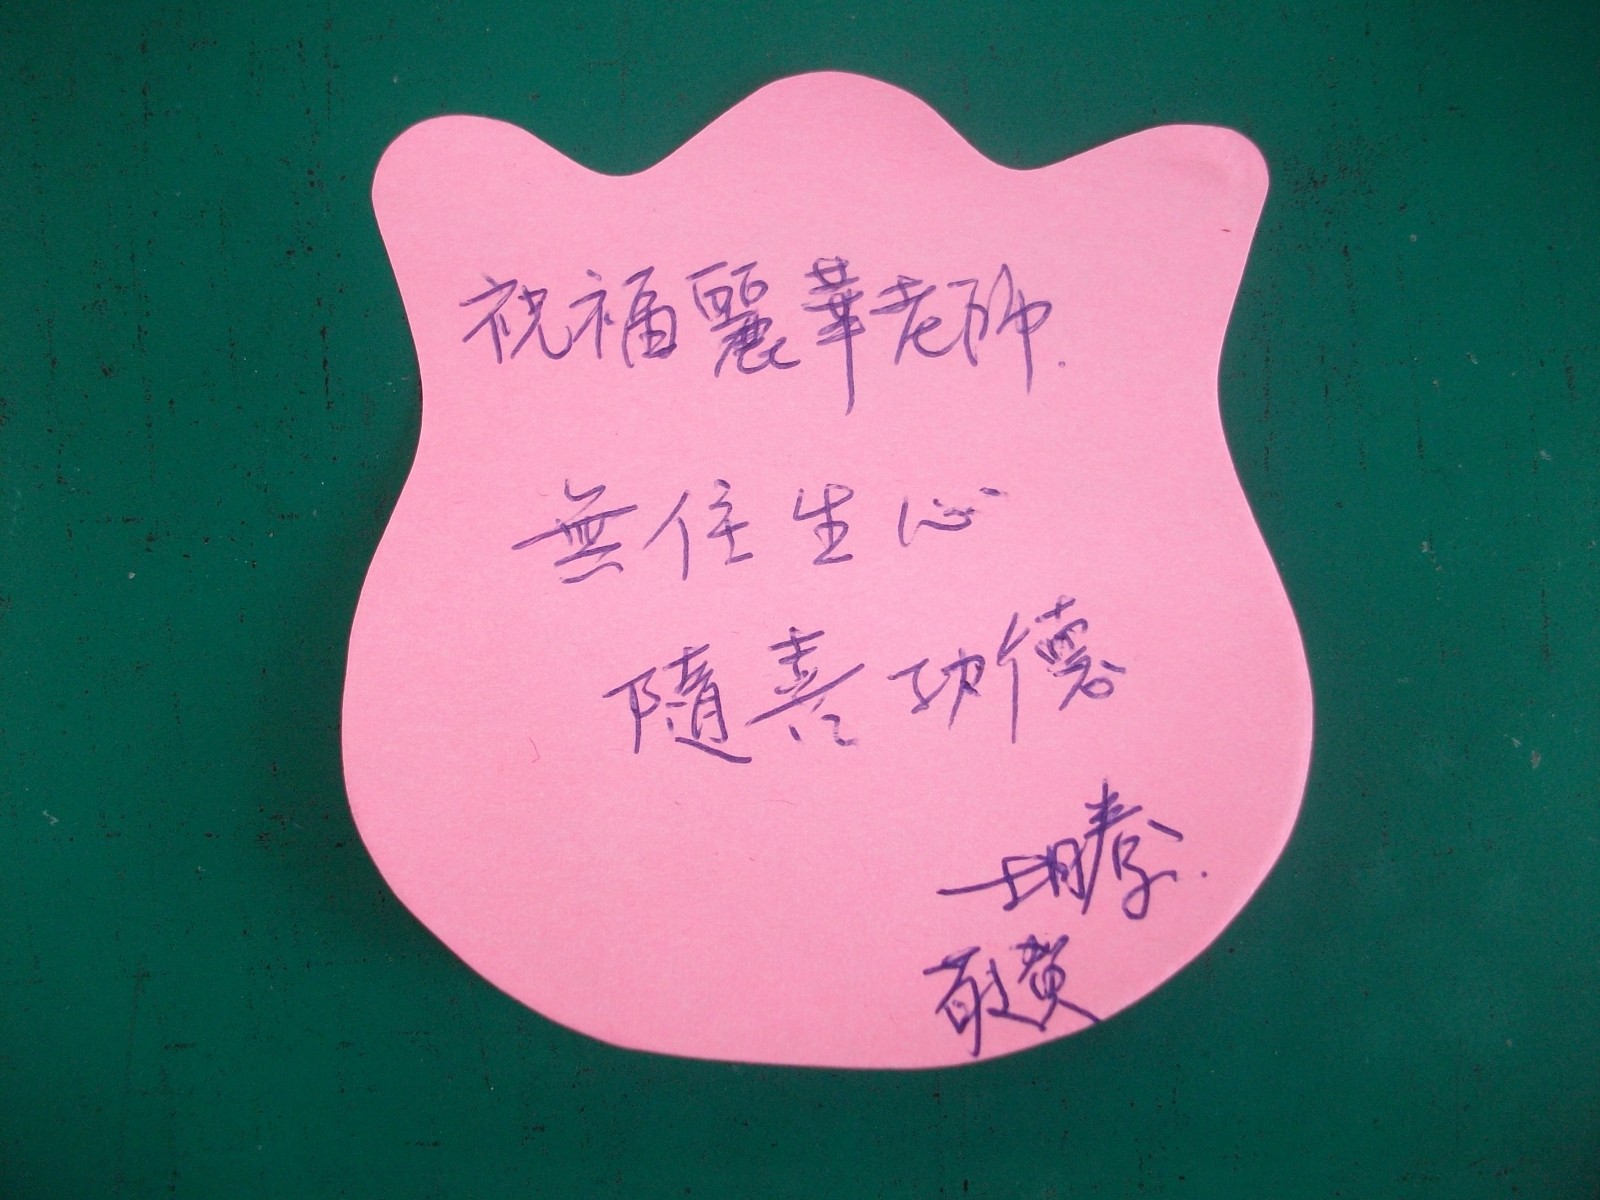 祝福麗華老師.
無住生心
隨喜功德
敬贊